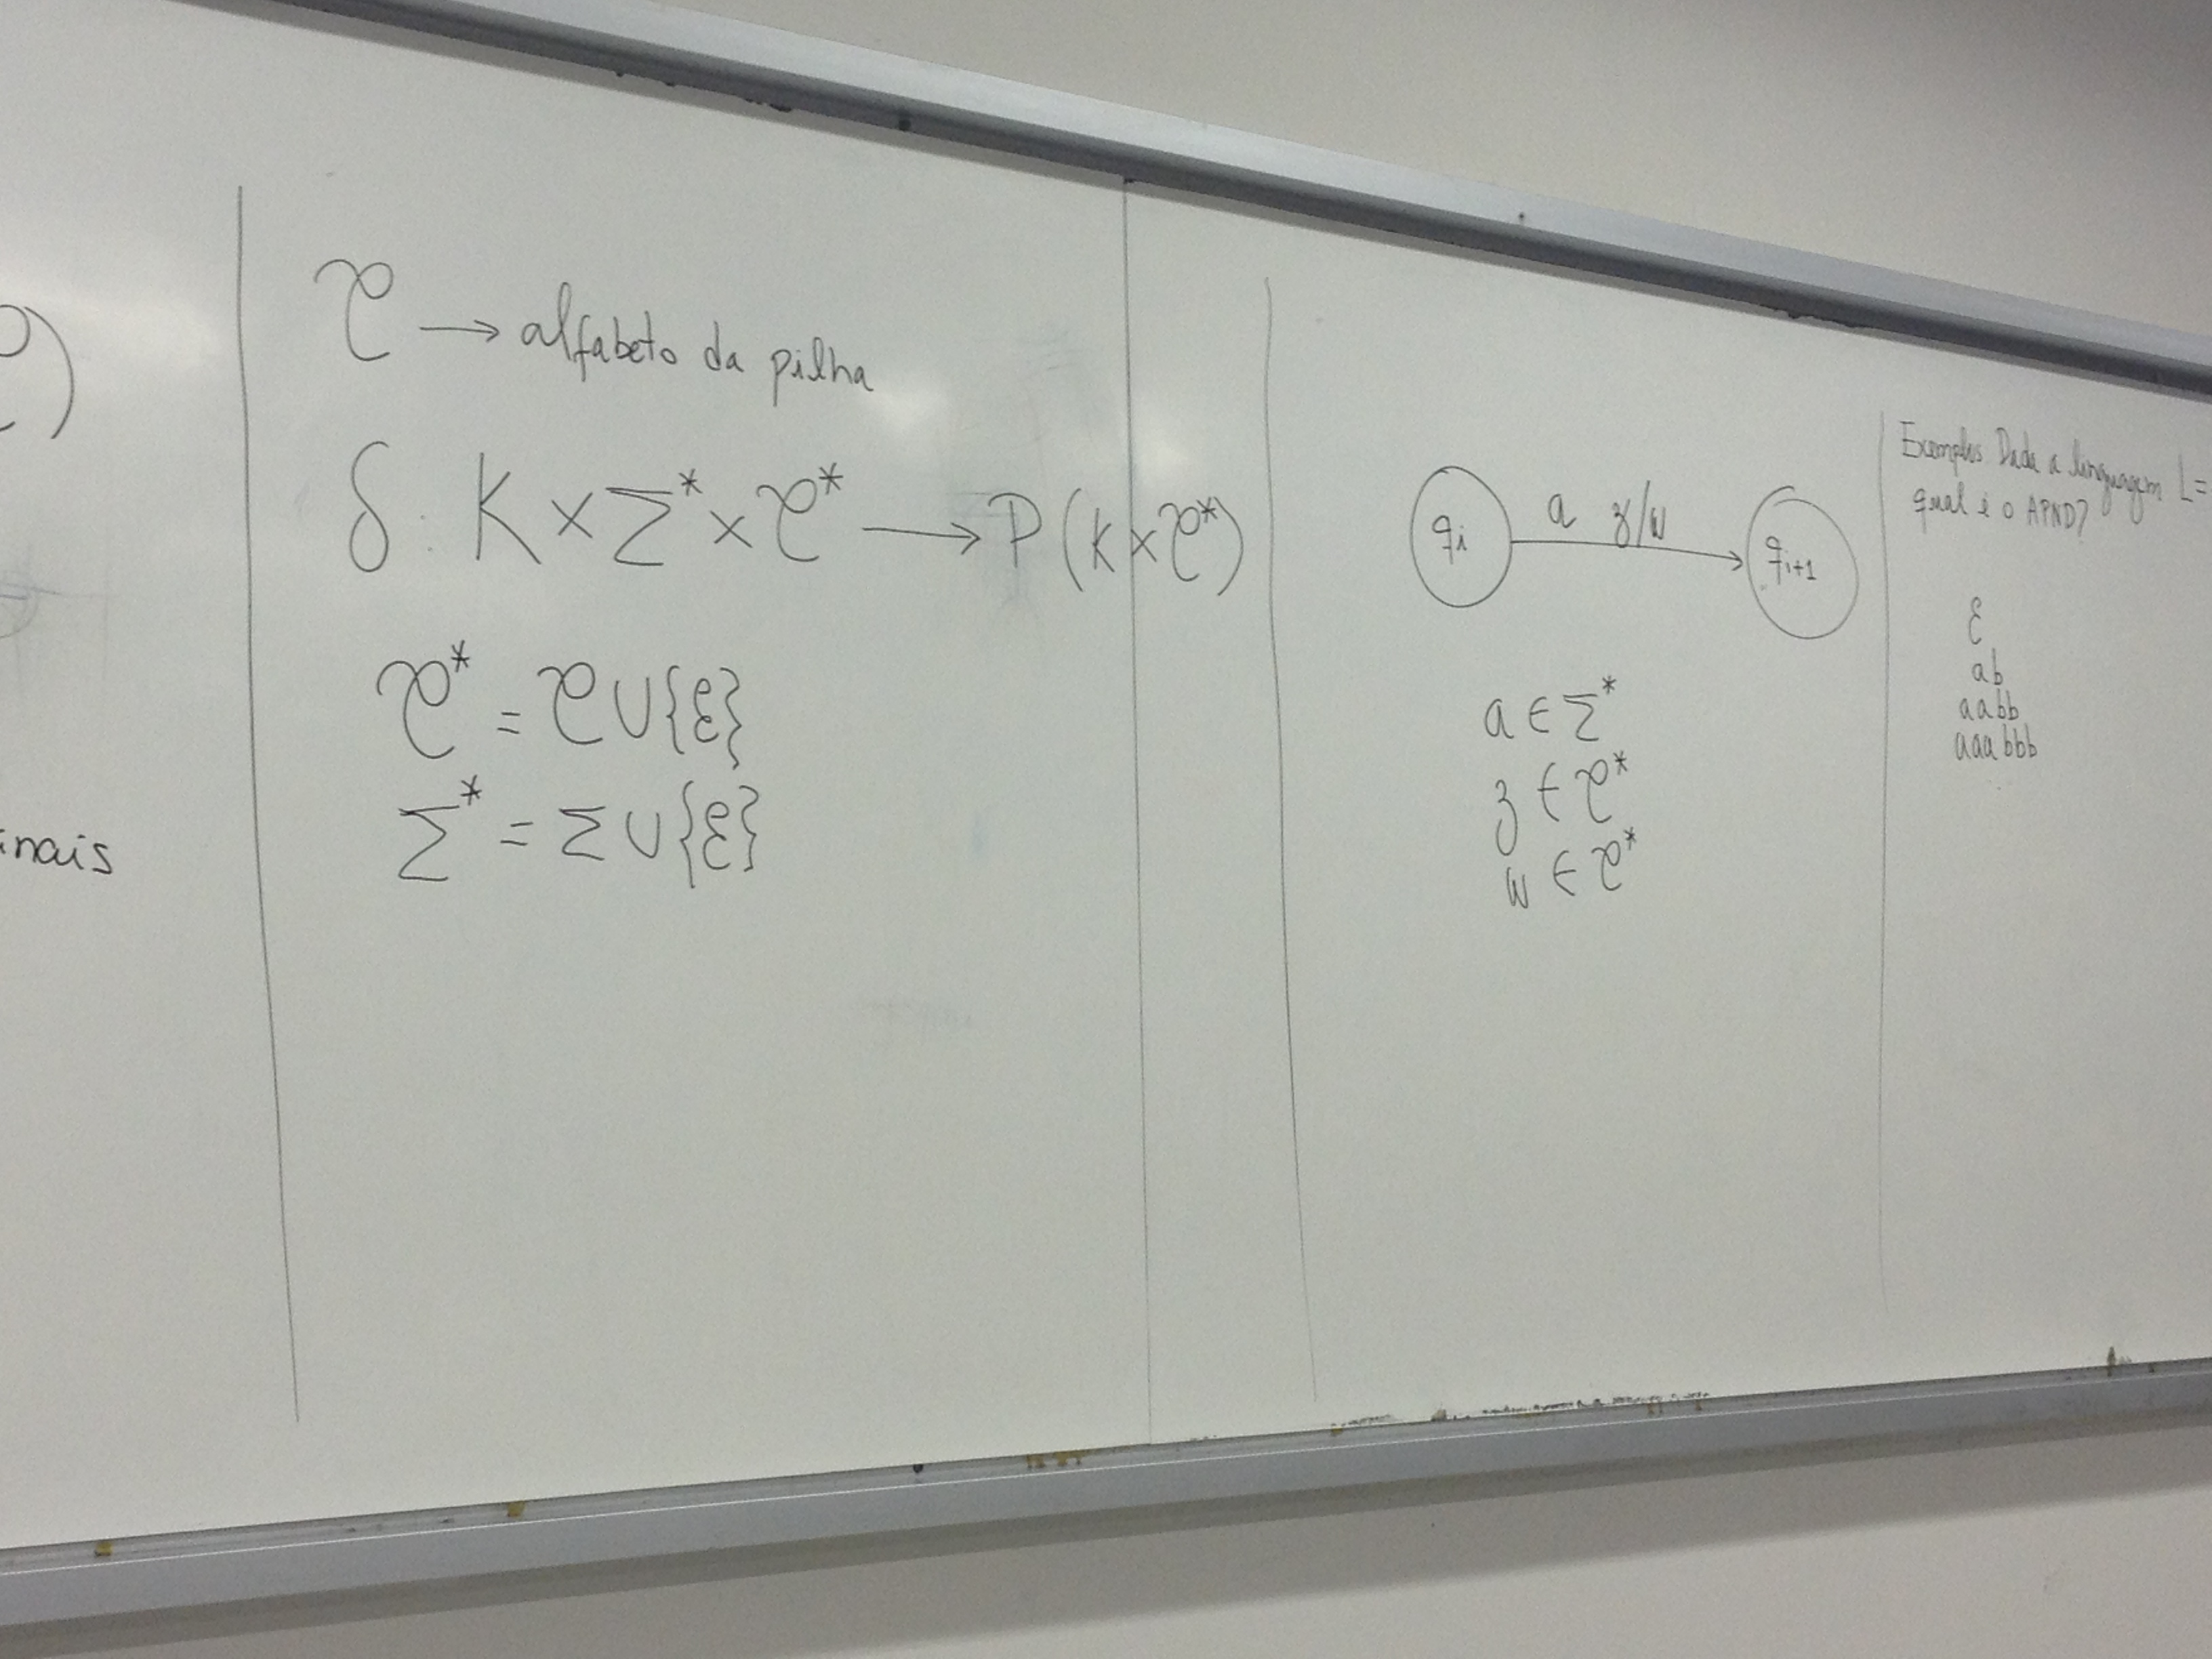 )
inais
τ → alfabeto da pilha
δ: K × Σ* × τ* → P(K × τ*)
τ* = τ ∪ {ε}
Σ* = Σ ∪ {ε}
qi a z/w qi+1
a ∈ Σ*
z ∈ τ*
w ∈ τ*
Exemplos Dada a linguagem L=
qual é o APND?
ε
ab
aabb
aaabbb